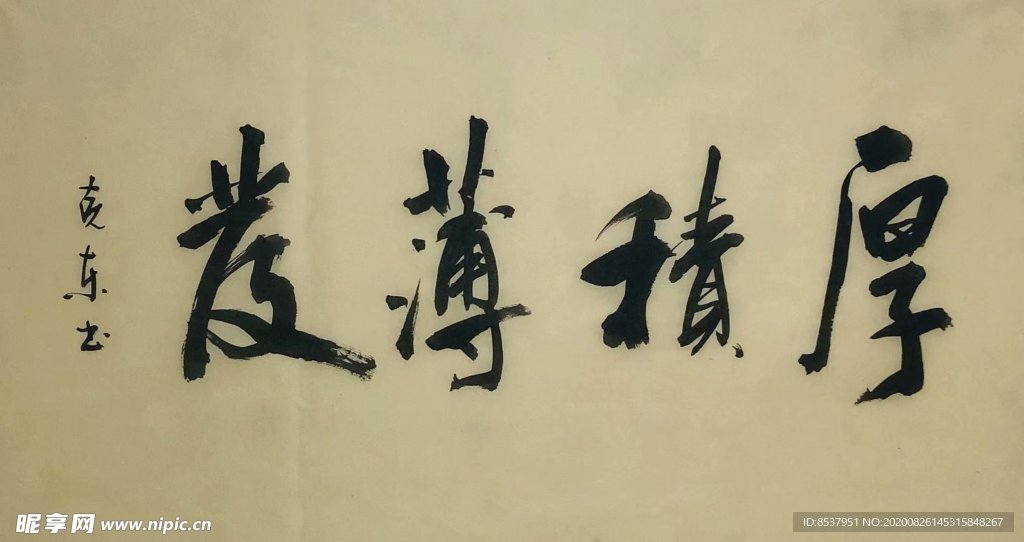 厚積薄發
克东书
昵享网 www.nipic.cn
ID:8537951 NO:20200826145315848267